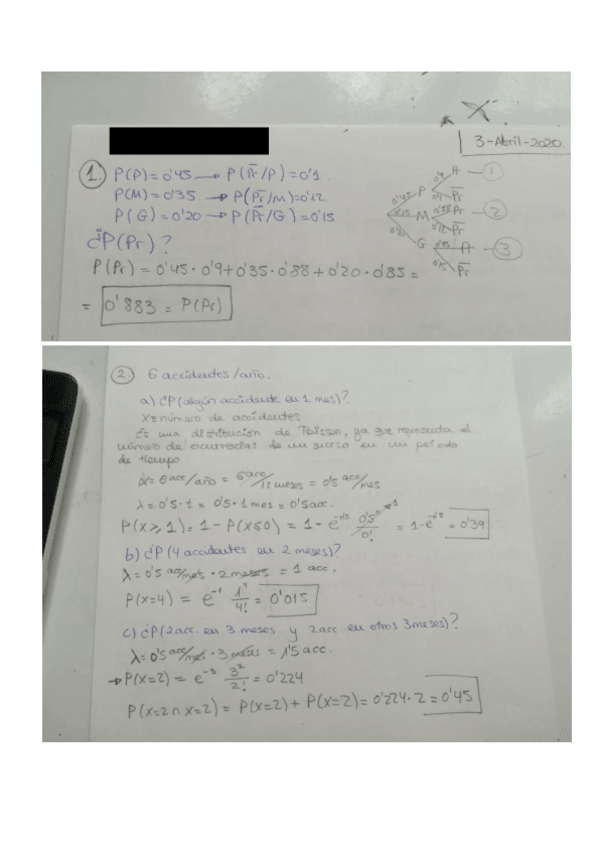 3-Abril-2020
1. P(P)=0'45 → P(P̅r̅/P)=0'1
P(M)=0'35 → P(P̅r̅/M)=0'12
P(G)=0'20 → P(P̅r̅/G)=0'15
¿P(Pr)?
P(Pr)=0'45·0'9+0'35·0'88+0'20·0'85=
= 0'883 = P(Pr)
P
A
1
P̅r̅
M
Pr
2
P̅r̅
G
A
3
P̅r̅
2. 6 accidentes/año.
a) ¿P(algún accidente en 1 mes)?
X=número de accidentes
Es una distribución de Poisson, ya que representa el
número de ocurrencias de un suceso en un periodo
de tiempo
α=6acc/año = 6acc/12 meses = 0'5 acc/mes
λ=0'5·t = 0'5·1 mes = 0'5acc.
P(X≥1)=1-P(X≤0) = 1-e^-0'5 0'5^0/0! = 1-e^-0'5 = 0'39
b) ¿P(4 accidentes en 2 meses)?
λ=0'5 acc/mes · 2 meses = 1 acc.
P(X=4) = e^-1 1^4/4! = 0'015
c) ¿P(2acc. en 3 meses y 2acc. en otros 3meses)?
λ=0'5 acc/mes · 3 meses = 1'5 acc.
→P(X=2) = e^-3 3^2/2! = 0'224
P(X=2∩X=2)= P(X=2)+P(X=2)=0'224·2=0'45